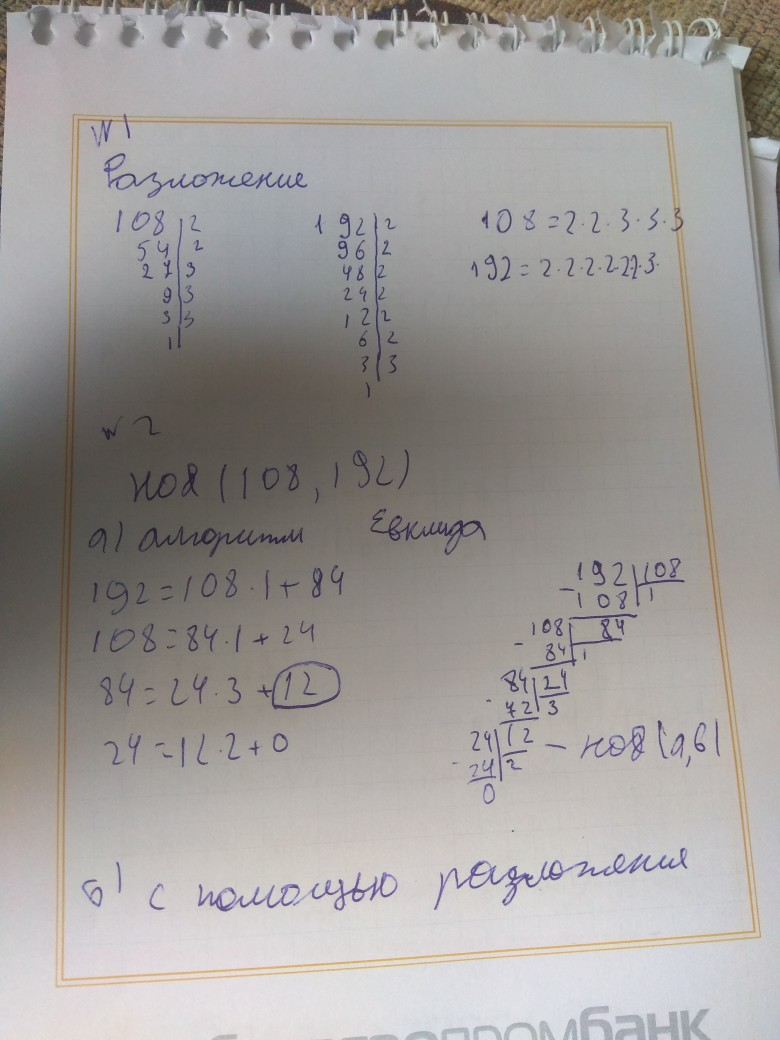 N 1
Разложение
108 | 2
54 | 2
27 | 3
9 | 3
3 | 3
1 |
192 | 2
96 | 2
48 | 2
24 | 2
12 | 2
6 | 2
3 | 3
1
108 = 2·2·3·3·3
192 = 2·2·2·2·2·2·3·
N 2
НОД (108, 192)
а) алгоритм Евклида
192 = 108·1 + 84
108 = 84·1 + 24
84 = 24·3 + 12
24 = 12·2 + 0
- 192 | 108
108 | 1
- 108 | 84
84 | 1
- 84 | 24
72 | 3
- 24 | 12 — НОД (а, б)
24 | 2
0
б) с помощью разложения